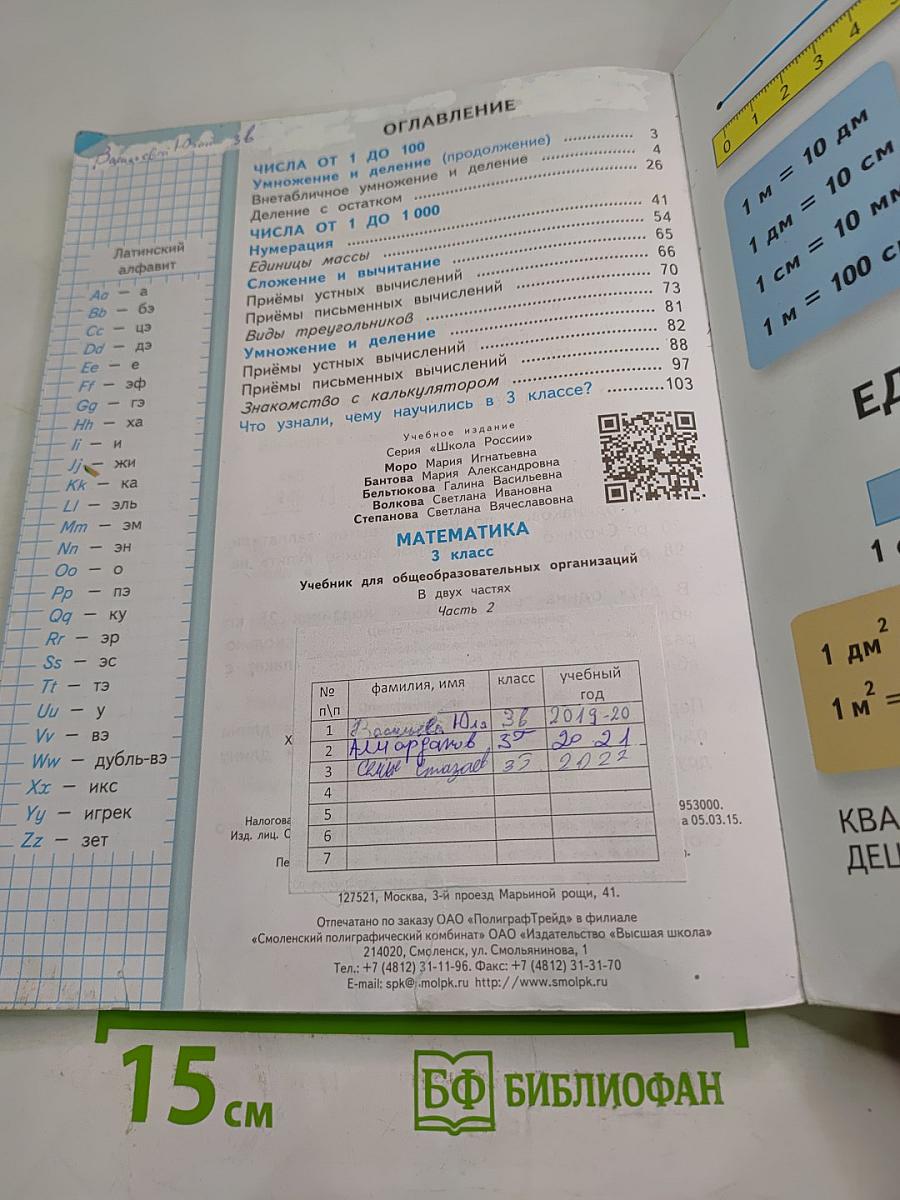 3в
Латинский
алфавит
Aa — а
Bb — бэ
Cc — цэ
Dd — дэ
Ee — е
Ff — эф
Gg — гэ
Hh — ха
Ii — и
Jj — жи
Kk — ка
Ll — эль
Mm — эм
Nn — эн
Oo — о
Pp — пэ
Qq — ку
Rr — эр
Ss — эс
Tt — тэ
Uu — у
Vv — вэ
Ww — дубль-вэ
Xx — икс
Yy — игрек
Zz — зет
ОГЛАВЛЕНИЕ
ЧИСЛА ОТ 1 ДО 100
Умножение и деление (продолжение) 3
Внетабличное умножение и деление 4
Деление с остатком 26
ЧИСЛА ОТ 1 ДО 1 000
Нумерация 41
Единицы массы 54
Сложение и вычитание 65
Приёмы устных вычислений 66
Приёмы письменных вычислений 70
Виды треугольников 73
Умножение и деление 81
Приёмы устных вычислений 82
Приёмы письменных вычислений 88
Знакомство с калькулятором 97
Что узнали, чему научились в 3 классе? 103
Учебное издание
Серия «Школа России»
Моро Мария Игнатьевна
Бантова Мария Александровна
Бельтюкова Галина Васильевна
Волкова Светлана Ивановна
Степанова Светлана Вячеславовна
МАТЕМАТИКА
3 класс
Учебник для общеобразовательных организаций
В двух частях
Часть 2
№ п\п фамилия, имя класс учебный год
1 Юля 3в 2019-20
2 20 21
3
4
5
6
7
Х
Налогова 953000.
Изд. лиц. С а 05.03.15.
Пе
127521, Москва, 3-й проезд Марьиной рощи, 41.
Отпечатано по заказу ОАО «ПолиграфТрейд» в филиале
«Смоленский полиграфический комбинат» ОАО «Издательство «Высшая школа»
214020, Смоленск, ул. Смольянинова, 1
Тел.: +7 (4812) 31-11-96. Факс: +7 (4812) 31-31-70
E-mail: spk@ molpk.ru http://www.smolpk.ru
0 1 2 3 4 5
1 м = 10 дм
1 дм = 10 см
1 см = 10 мм
1 м = 100 с
ЕД
1
1 дм²
1 м² =
КВА
ДЕЦ
15 см
БФ БИБЛИОФАН